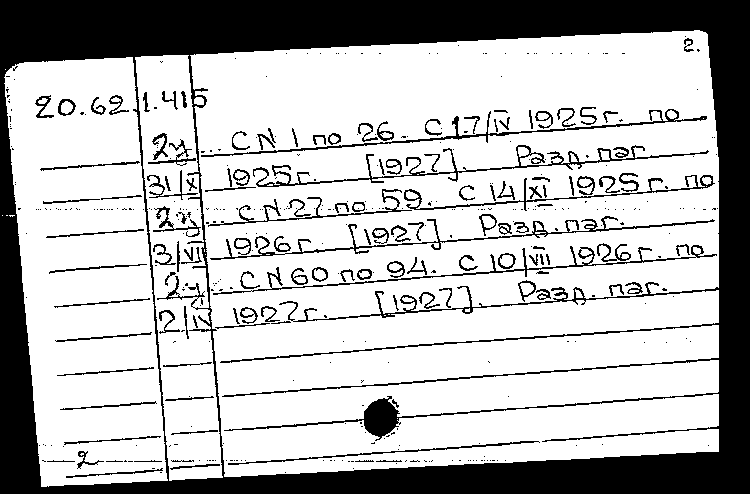 2.
20.62.1.415
2у... С N 1 по 26. С 17/IV 1925 г. по
31/X 1925 г. [1927]. Разд. паг.
2у... С N 27 по 59. С 14/XI 1925 г. по
3/VII 1926 г. [1927]. Разд. паг.
2у... С N 60 по 94. С 10/VII 1926 г. по
2/IV 1927 г. [1927]. Разд. паг.
2